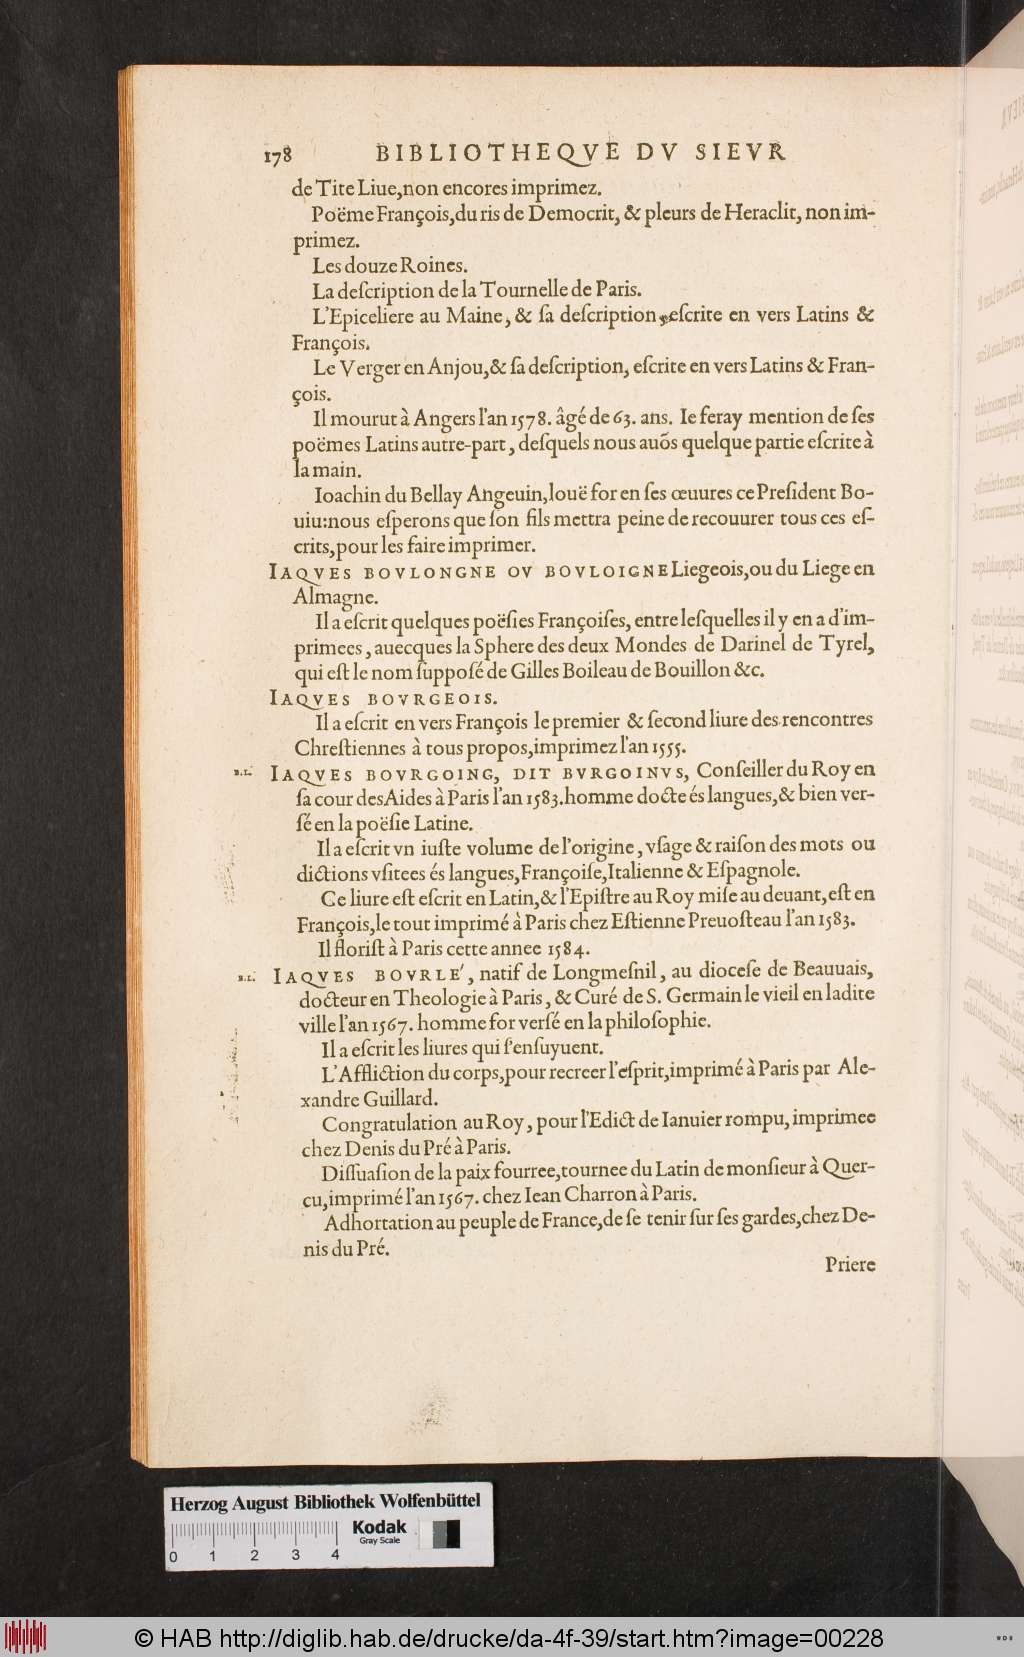 178 BIBLIOTHEQVE DV SIEVR
de Tite Liue,non encores imprimez.
Poëme François,du ris de Democrit, & pleurs de Heraclit, non im-
primez.
Les douze Roines.
La deſcription de la Tournelle de Paris.
L'Epiceliere au Maine, & ſa deſcription, eſcrite en vers Latins &
François.
Le Verger en Anjou,& ſa deſcription, eſcrite en vers Latins & Fran-
çois.
Il mourut à Angers l'an 1578. âgé de 63. ans. Ie feray mention de ſes
poëmes Latins autre-part, deſquels nous auõs quelque partie eſcrite à
la main.
Ioachin du Bellay Angeuin,louë for en ſes œuures ce Preſident Bo-
uiu:nous eſperons que ſon fils mettra peine de recouurer tous ces eſ-
crits,pour les faire imprimer.
IAQVES BOVLONGNE OV BOVLOIGNE Liegeois,ou du Liege en
Almagne.
Il a eſcrit quelques poëſies Françoiſes, entre leſquelles il y en a d'im-
primees, auecques la Sphere des deux Mondes de Darinel de Tyrel,
qui eſt le nom ſuppoſé de Gilles Boileau de Bouillon &c.
IAQVES BOVRGEOIS.
Il a eſcrit en vers François le premier & ſecond liure des rencontres
Chreſtiennes à tous propos,imprimez l'an 1555.
B.L. IAQVES BOVRGOING, DIT BVRGOINVS, Conſeiller du Roy en
ſa cour des Aides à Paris l'an 1583.homme docte és langues,& bien ver-
ſé en la poëſie Latine.
Il a eſcrit vn iuſte volume de l'origine, vſage & raiſon des mots ou
dictions vſitees és langues,Françoiſe,Italienne & Eſpagnole.
Ce liure eſt eſcrit en Latin,& l'Epiſtre au Roy miſe au deuant,eſt en
François,le tout imprimé à Paris chez Eſtienne Preuoſteau l'an 1583.
Il floriſt à Paris cette annee 1584.
B.L. IAQVES BOVRLE', natif de Longmeſnil, au dioceſe de Beauuais,
docteur en Theologie à Paris, & Curé de S. Germain le vieil en ladite
ville l'an 1567. homme for verſé en la philoſophie.
Il a eſcrit les liures qui ſ'enſuyuent.
L'Affliction du corps,pour recreer l'eſprit,imprimé à Paris par Ale-
xandre Guillard.
Congratulation au Roy, pour l'Edict de Ianuier rompu, imprimee
chez Denis du Pré à Paris.
Diſſuaſion de la paix fourree,tournee du Latin de monſieur à Quer-
cu,imprimé l'an 1567. chez Iean Charron à Paris.
Adhortation au peuple de France,de ſe tenir ſur ſes gardes,chez De-
nis du Pré.
Priere
Herzog August Bibliothek Wolfenbüttel
Kodak
Gray Scale
0 1 2 3 4
© HAB http://diglib.hab.de/drucke/da-4f-39/start.htm?image=00228